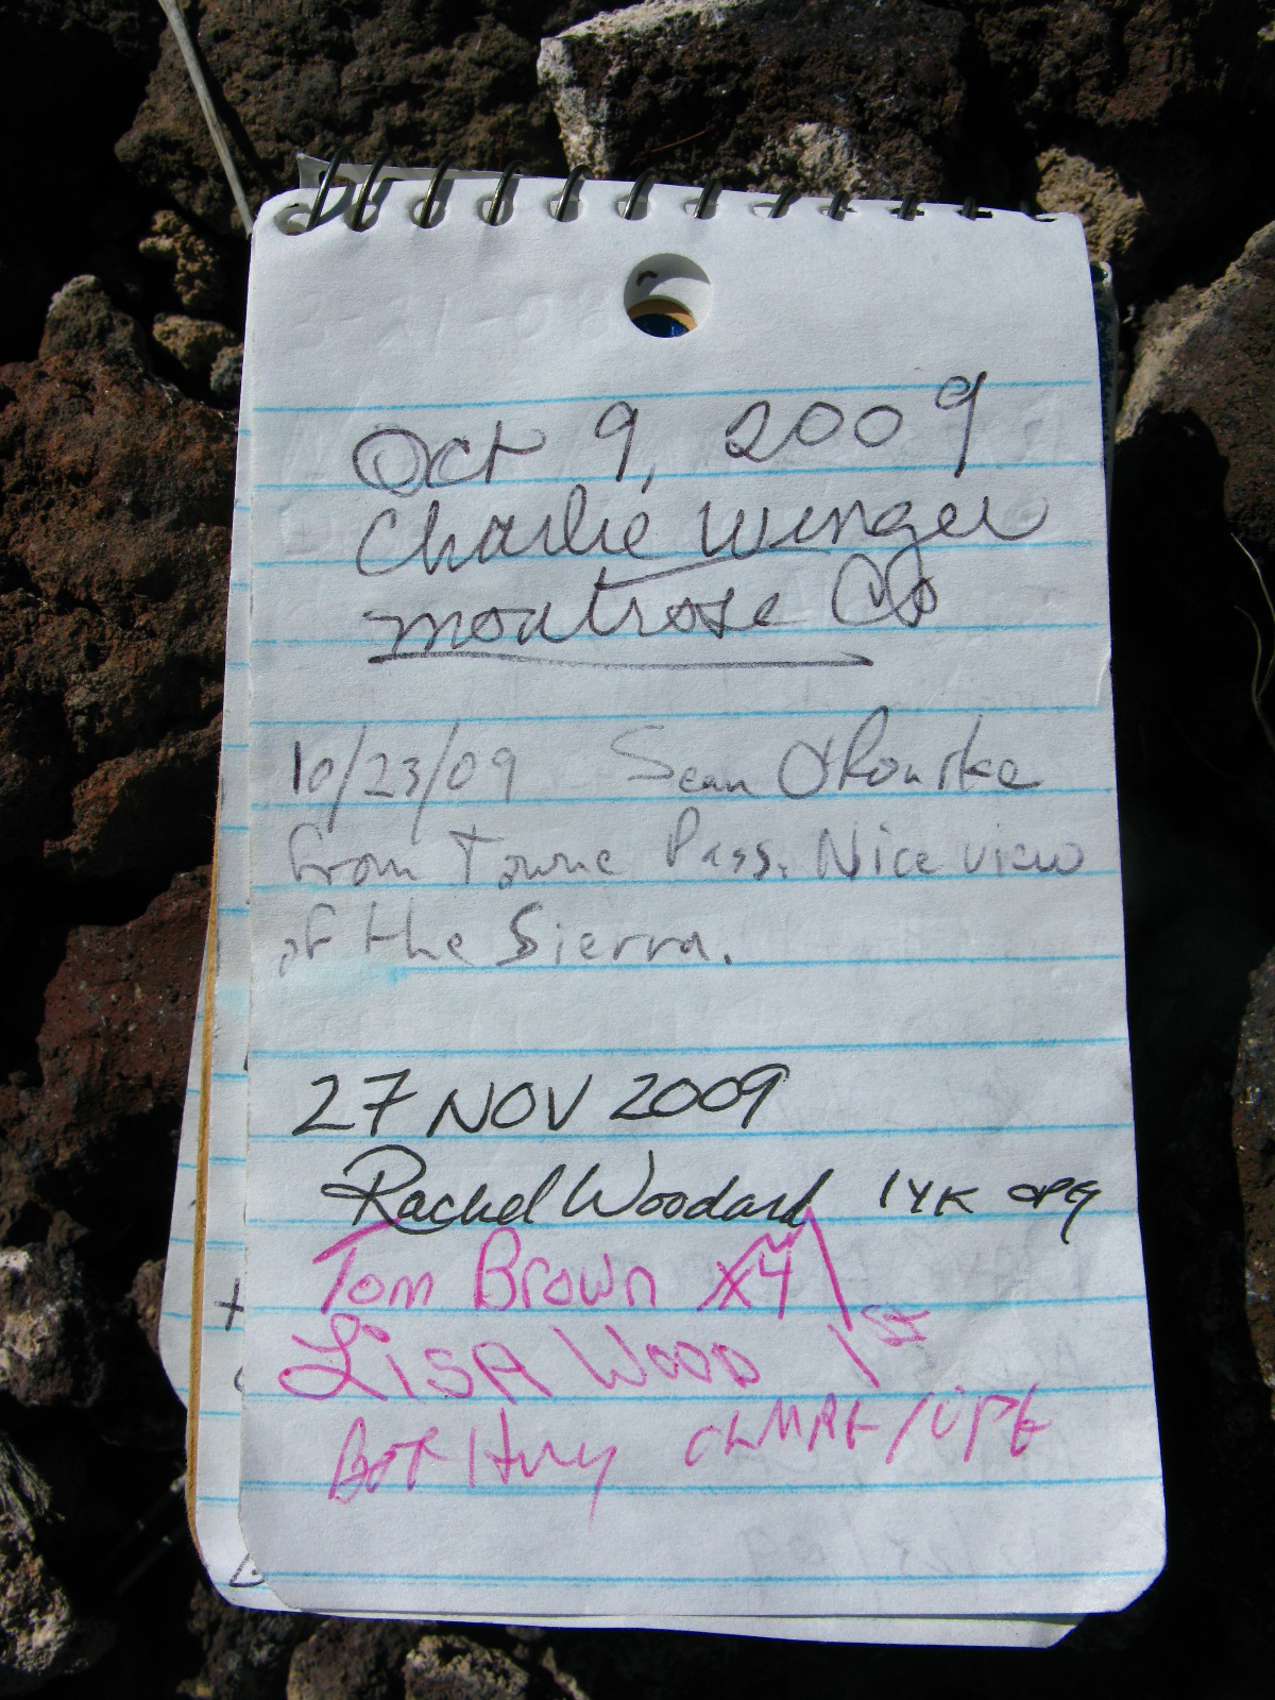 Oct 9, 2009
Charlie Winger
Montrose CO
10/23/09 Sean O'Rourke
from Towne Pass. Nice view
of the Sierra.
27 NOV 2009
Rachel Woodard 14K
Tom Brown x4
LISA WOOD 1st